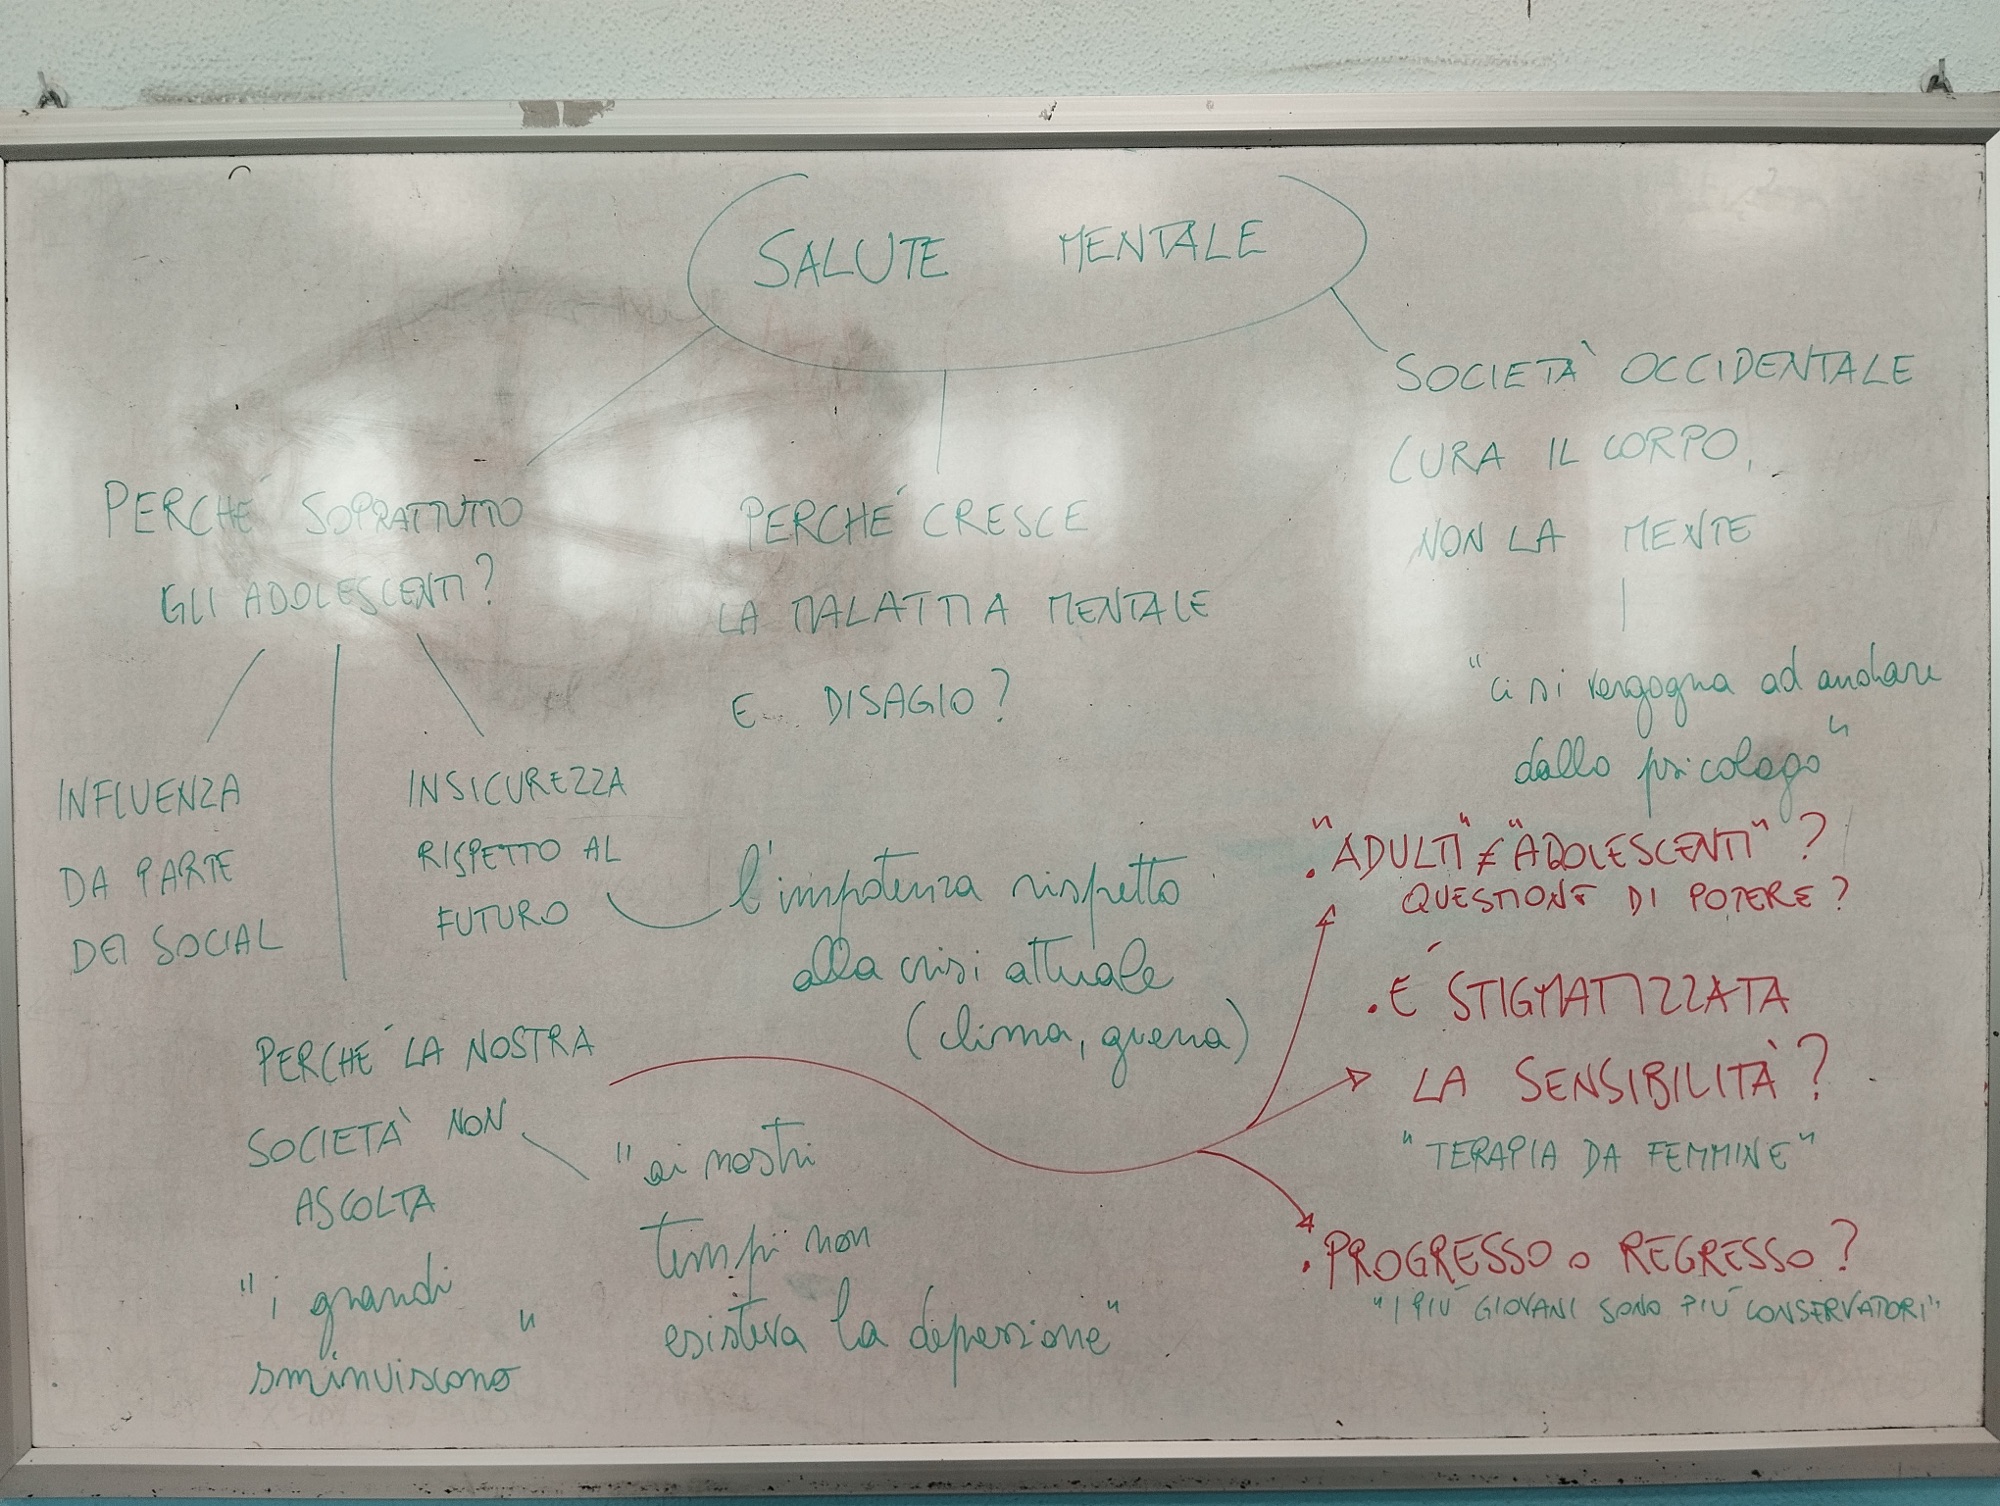 SALUTE MENTALE
PERCHÉ SOPRATTUTTO
GLI ADOLESCENTI?
INFLUENZA
DA PARTE
DEI SOCIAL
INSICUREZZA
RISPETTO AL
FUTURO
l'impotenza rispetto
alla crisi attuale
(clima, guerra)
PERCHÉ LA NOSTRA
SOCIETÀ NON
ASCOLTA
"i grandi
sminuiscono"
"ai nostri
tempi non
esisteva la depressione"
PERCHÉ CRESCE
LA MALATTIA MENTALE
E DISAGIO?
SOCIETÀ OCCIDENTALE
CURA IL CORPO,
NON LA MENTE
"ci si vergogna ad andare
dallo psicologo"
• "ADULTI" ≠ "ADOLESCENTI"?
QUESTIONE DI POTERE?
• É STIGMATIZZATA
LA SENSIBILITÀ?
"TERAPIA DA FEMMINE"
• PROGRESSO o REGRESSO?
"I PIÙ GIOVANI SONO PIÙ CONSERVATORI"